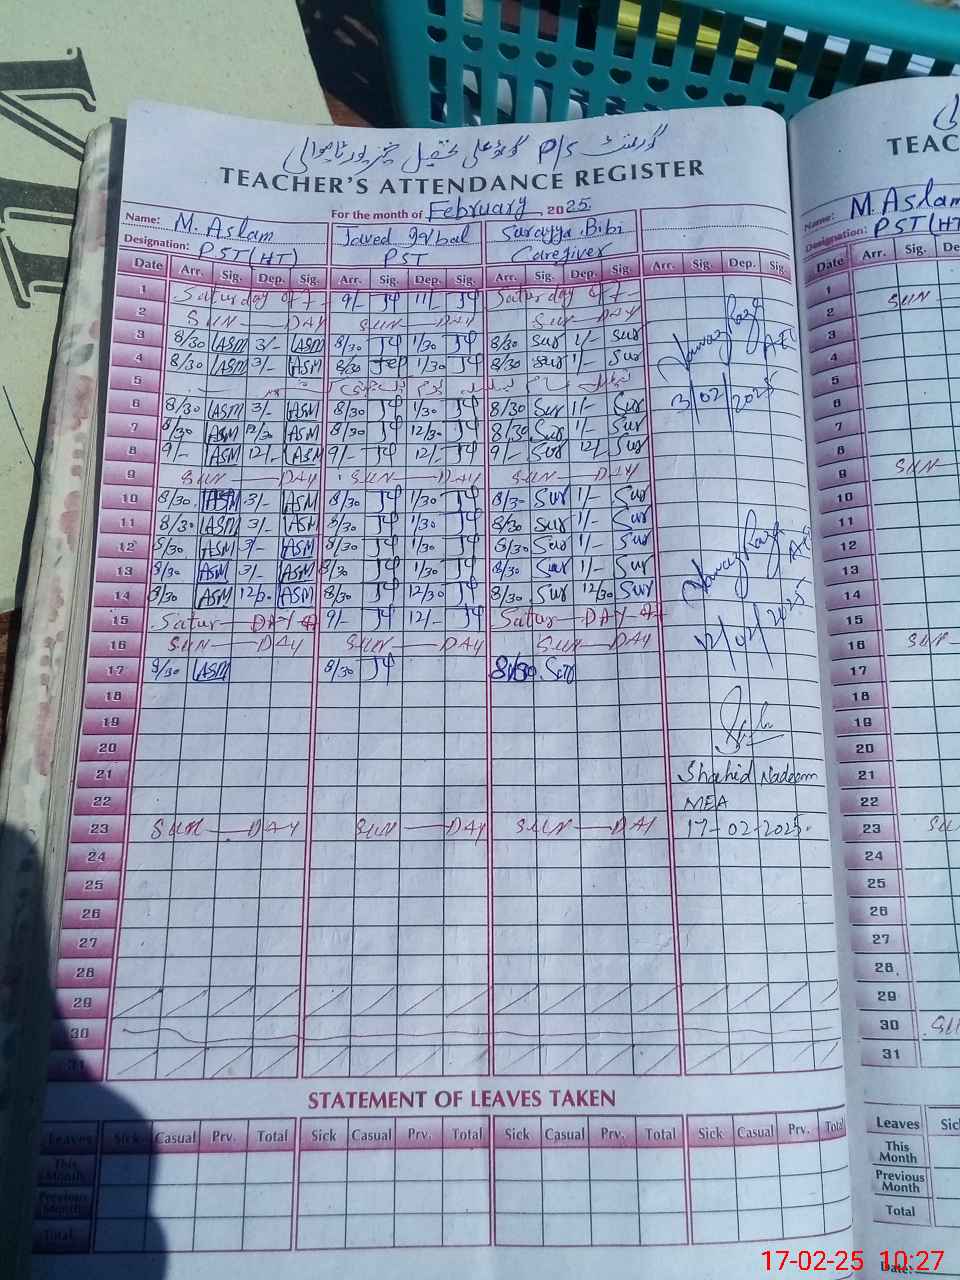 گورنمنٹ P/S
TEACHER'S ATTENDANCE REGISTER
For the month of February 2025
Name: M. Aslam Javed Iqbal Surayya Bibi
Designation: PST(HT) PST Caregiver
Date Arr. Sig. Dep. Sig. Arr. Sig. Dep. Sig. Arr. Sig. Dep. Sig. Arr. Sig. Dep. Sig.
1 Saturday off 9/- 11/- Saturday off
2 SUN DAY SUN DAY SUN DAY
3 8/30 ASM 3/- ASM 8/30 1/30 8/30 Sur 1/- Sur
4 8/30 ASM 3/- ASM 8/30 1/30 8/30 Sur 1/- Sur
5
6 8/30 ASM 3/- ASM 8/30 1/30 8/30 Sur 1/- Sur
7 8/30 ASM 12/30 ASM 8/30 12/30 8/30 Sur 1/- Sur
8 9/- ASM 12/- ASM 9/- 12/- 9/- Sur 12/- Sur
9 SUN DAY SUN DAY SUN DAY
10 8/30 ASM 3/- ASM 8/30 1/30 8/3- Sur 1/- Sur
11 8/30 ASM 3/- ASM 8/30 1/30 8/30 Sur 1/- Sur
12 8/30 ASM 3/- ASM 8/30 1/30 8/30 Sur 1/- Sur
13 8/30 ASM 3/- ASM 8/30 1/30 8/30 Sur 1/- Sur
14 8/30 ASM 12/30 ASM 8/30 12/30 8/30 Sur 12/30 Sur
15 Satur DAY 9/- 12/- Satur DAY
16 SUN DAY SUN DAY SUN DAY
17 8/30 ASM 8/30 8/30 Sur
18
19
20
21
22
23 SUN DAY SUN DAY SUN DAY
24
25
26
27
28
29
30
31
3/02/2025
12/02/2025
Shahid Nadeem
MEA
17-02-2025.
STATEMENT OF LEAVES TAKEN
Leaves Sick Casual Prv. Total Sick Casual Prv. Total Sick Casual Prv. Total Sick Casual Prv. Total
This Month
Previous Month
Total
TEAC
Name: M. Aslam
Designation: PST(HT
Date Arr. Sig. De
1
2 SUN
3
4
5
6
7
8
9 SUN
10
11
12
13
14
15
16 SUN
17
18
19
20
21
22
23 SU
24
25
26
27
28
29
30 SU
31
Leaves Sic
This Month
Previous Month
Total
Date:
17-02-25 10:27